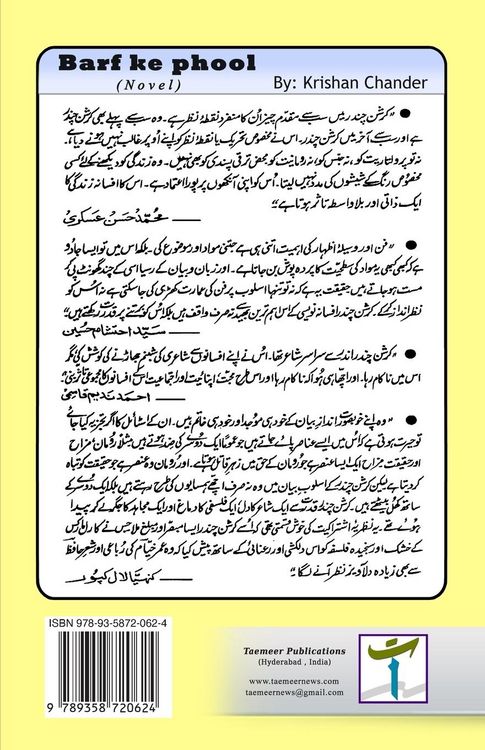 Barf ke phool
(Novel)
By: Krishan Chander
● "کرشن چندر میں سب سے مقدّم چیز اُن کا منفرد نقطۂ نظر ہے۔ وہ سب سے پہلے بھی کرشن چندر
ہے اور سب سے آخر میں کرشن چندر۔ اس نے مخصوص تحریک یا نقطۂ نظر کو اپنے اوپر غالب نہیں ہونے دیا ہے۔
نہ تو پرولتاریت کو، نہ جنس کو، نہ رومانیت کو، محض ترقی پسندی کو بھی نہیں۔ وہ زندگی کو دیکھنے کے لئے کسی
مخصوص رنگ کے شیشوں کی مدد نہیں لیتا۔ اُس کو اپنی آنکھوں پر پورا اعتماد ہے۔ اس کا افسانہ زندگی کا
ایک ذاتی اور بلا واسطہ تاثر ہوتا ہے"
محمد حسن عسکری
● "فن اور وسیلۂ اظہار کی اہمیت اتنی ہی ہے جتنی مواد اور موضوع کی۔ بلکہ اس میں تو ایسا جادو
ہے کہ کبھی کبھی یہ مواد کی سطحیت کا پردہ پوش بن جاتا ہے۔ اور زبان و بیان کے رسیا اسی کے چند گھونٹ پی کر
مست ہو جاتے ہیں حقیقت یہ ہے کہ نہ تو تنہا اسلوب پر فن کی عمارت کھڑی کی جا سکتی ہے نہ اُس کو
نظر انداز کر کے۔ کرشن چندر افسانہ نویسی کے اس اہم ترین بھید سے نہ صرف واقف ہیں بلکہ اُس کو برتنے پر قدرت رکھتے ہیں"
سید احتشام حسین
● "کرشن چندر اندر سے سراسر شاعر تھا۔ اُس نے اپنے افسانوں سے شاعری کی شبنم جھاڑنے کی کوشش کی مگر
اس میں ناکام رہا۔ اور اچھا ہی ہوا کہ ناکام رہا اور اس طرح محبت، اپنائیت اور اجتماعیت اس کے افسانوں کا مجموعی تاثر بنی"
احمد ندیم قاسمی
● "وہ اپنے خوبصورت اندازِ بیان کے خود ہی موجد اور خود ہی خاتم ہیں۔ ان کے اسٹائل کا اگر تجزیہ کیا جائے
تو حیرت ہوتی ہے کہ اُس میں ایسے عناصر پائے جاتے ہیں جو عموماً ایک دوسرے کی ضد ہوتے ہیں مثلاً رومان، مزاح
اور حقیقت، مزاح ایک ایسا عنصر ہے جو رومان کے حق میں زہرِ قاتل ہوتا ہے۔ اور رومان وہ عنصر ہے جو حقیقت کو تباہ
کر دیتا ہے لیکن کرشن چندر کے اسلوب بیان میں وہ نہ صرف اچھے ہمسایوں کی طرح رہتے ہیں بلکہ ایک دوسرے کے
ساتھ گھل مل بیٹھتے ہیں۔ کرشن چندر قدرت سے ایک شاعر کا دل، ایک فلسفی کا دماغ اور ایک مجاہد کا جگر لے کر پیدا
ہوئے تھے۔ یہ نظریۂ اشتراکیت کی خوش قسمتی تھی کہ اُسے کرشن چندر ایسا مبصر اور مبلغ ملا جس نے کارل مارکس
کے خشک اور سنجیدہ فلسفہ کو اس دلکشی اور رعنائی کے ساتھ پیش کیا کہ وہ عمر خیام کی رباعی اور شعرِ حافظ
سے بھی زیادہ دلآویز نظر آنے لگا"
کنہیا لال کپور
ISBN 978-93-5872-062-4
9 789358 720624
Taemeer Publications
(Hyderabad , India)
www.taemeernews.com
taemeernews@gmail.com